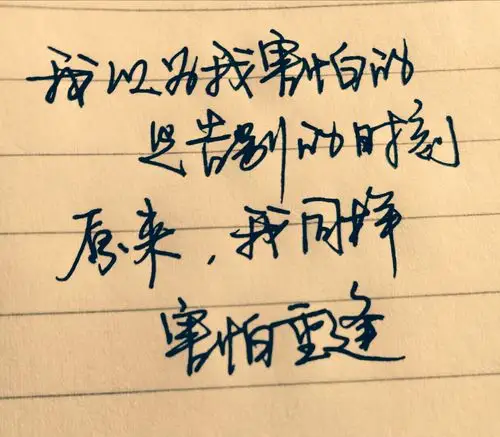 我以为我害怕的
是告别的时刻
原来，我同样
害怕重逢